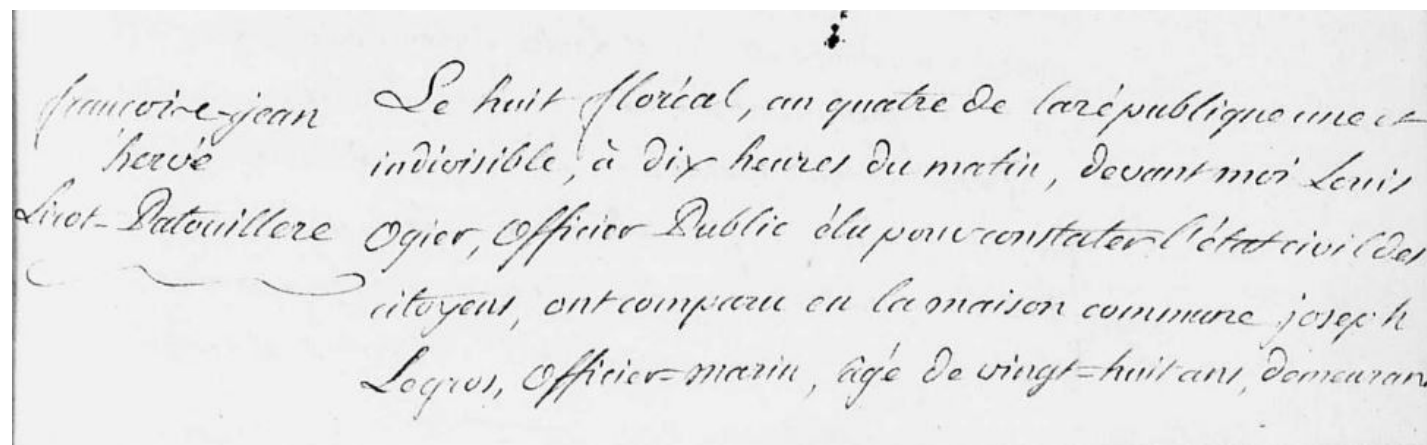 françoise-jean
hervé
Lirot-Patouillere
Le huit floréal, an quatre de la république une et
indivisible, à dix heures du matin, devant moi Louis
Ogier, Officier Public élu pour constater l'état civil des
citoyens, ont comparu en la maison commune joseph
Legros, Officier=marin, âgé de vingt=huit ans, demeuran